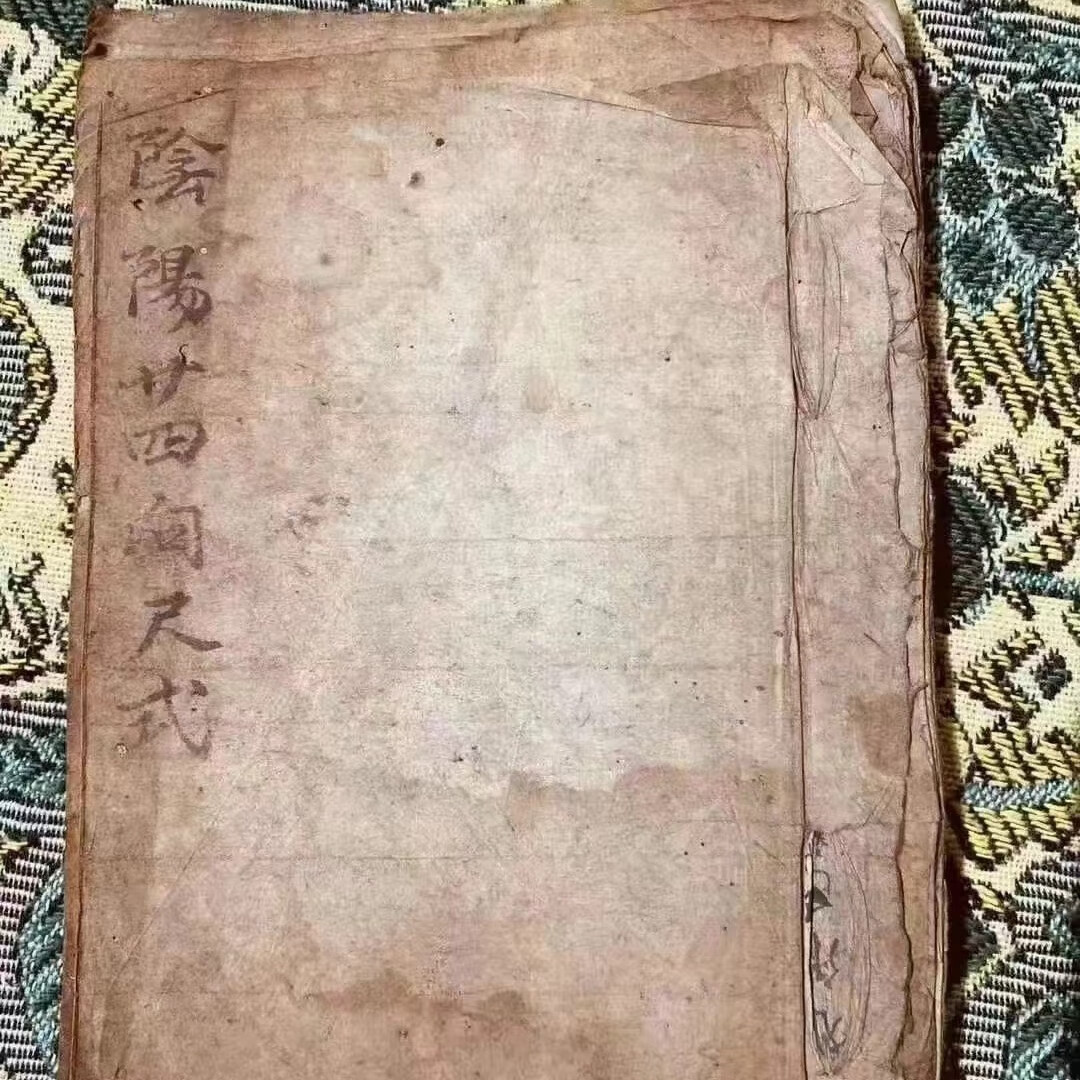 陰陽廿四向尺式